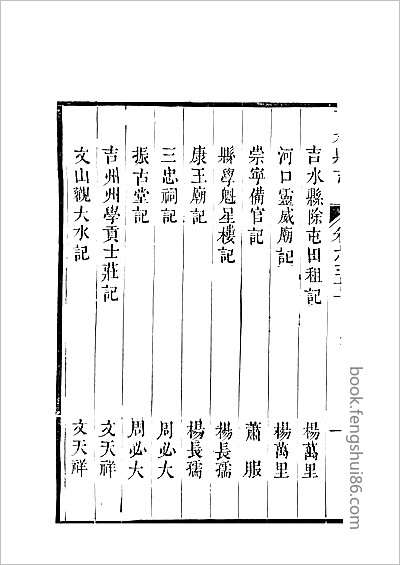 吉水縣除屯田租記 楊萬里
河口靈威廟記 楊萬里
崇寧備官記 蕭服
縣學魁星樓記 楊長孺
康王廟記 楊長孺
三忠祠記 周必大
振古堂記 周必大
吉州州學貢士莊記 文天祥
文山觀大水記 文天祥
book.fengshui86.com